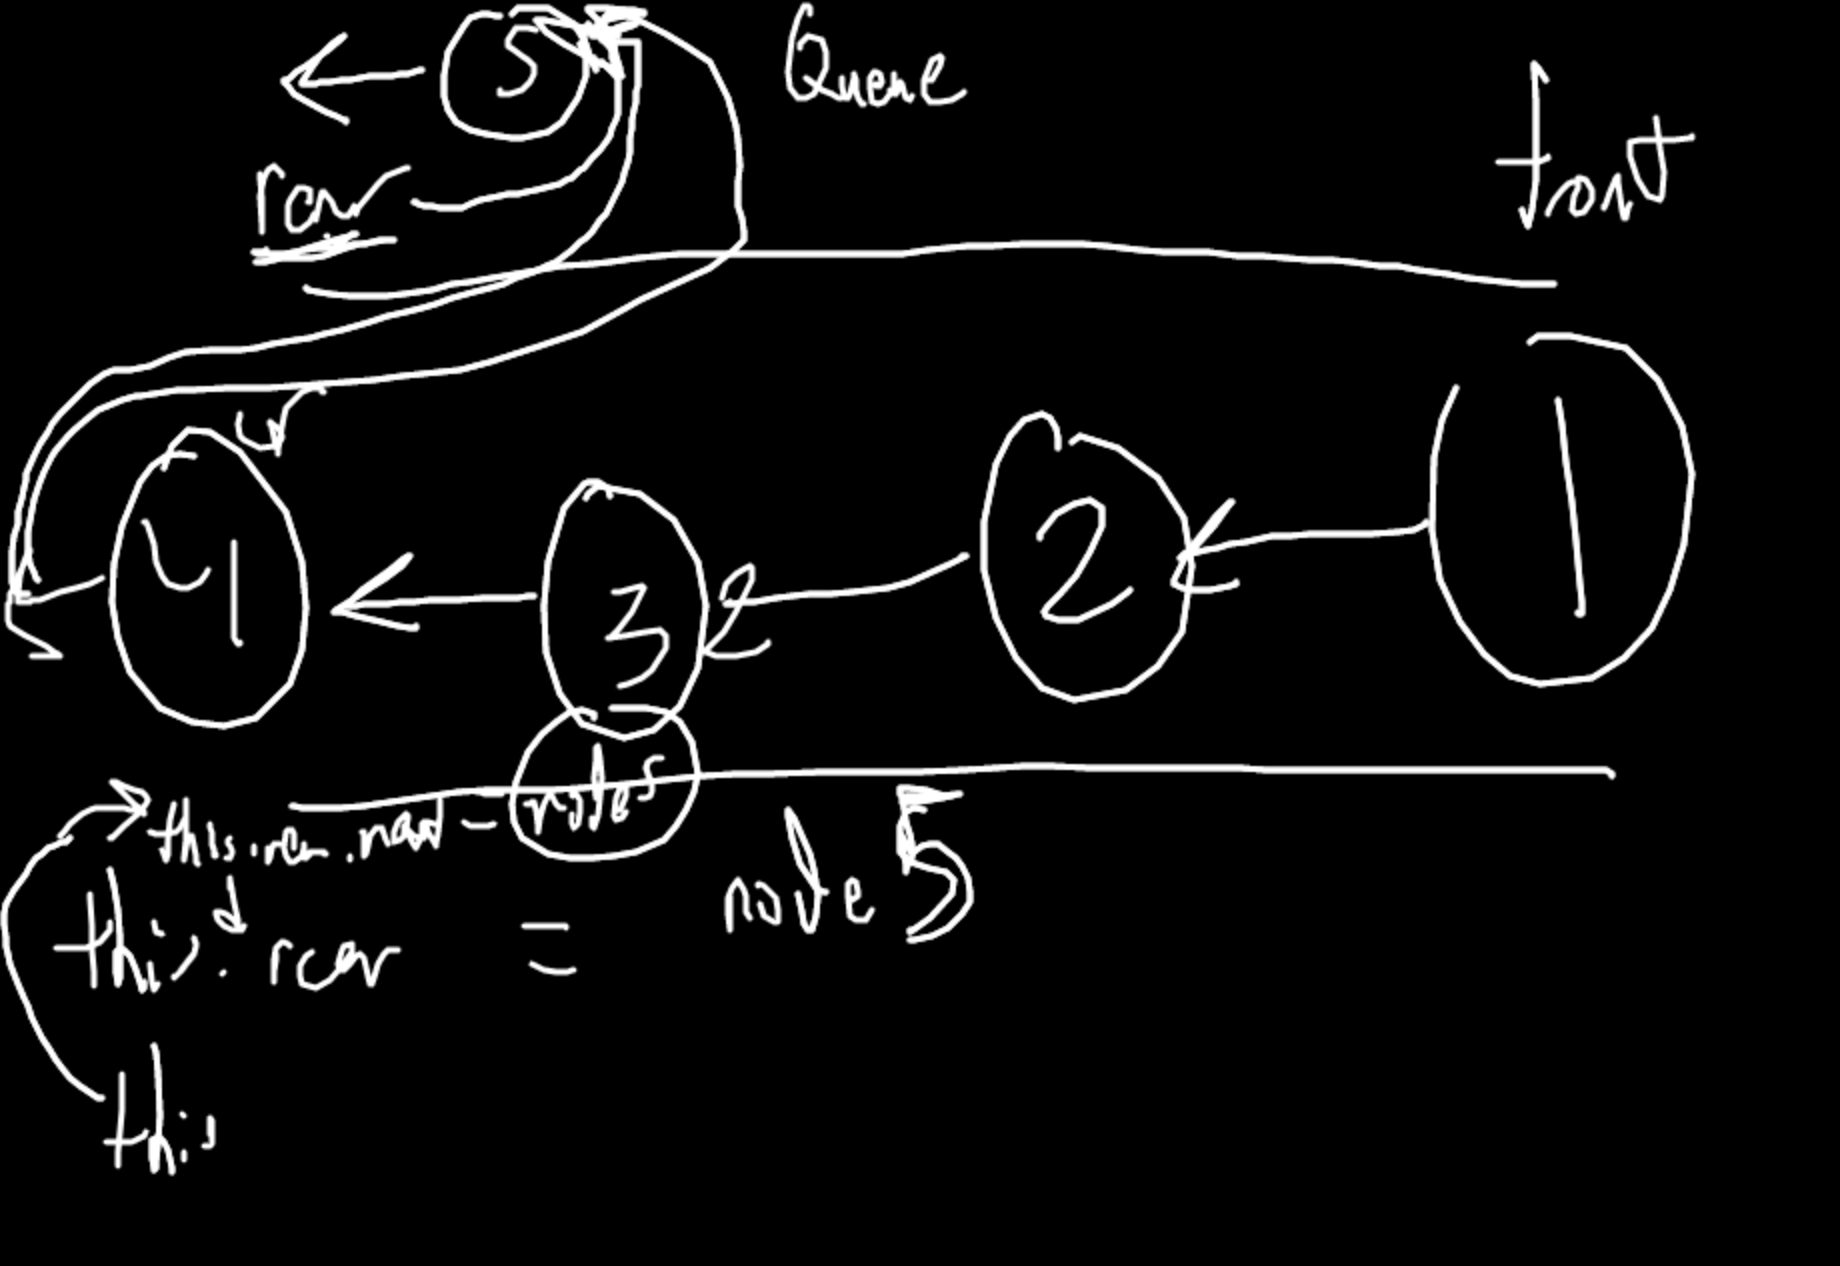 5 Queue
rear
front
4 3 2 1
this.rear.next = node5
this.rear = node 5
this